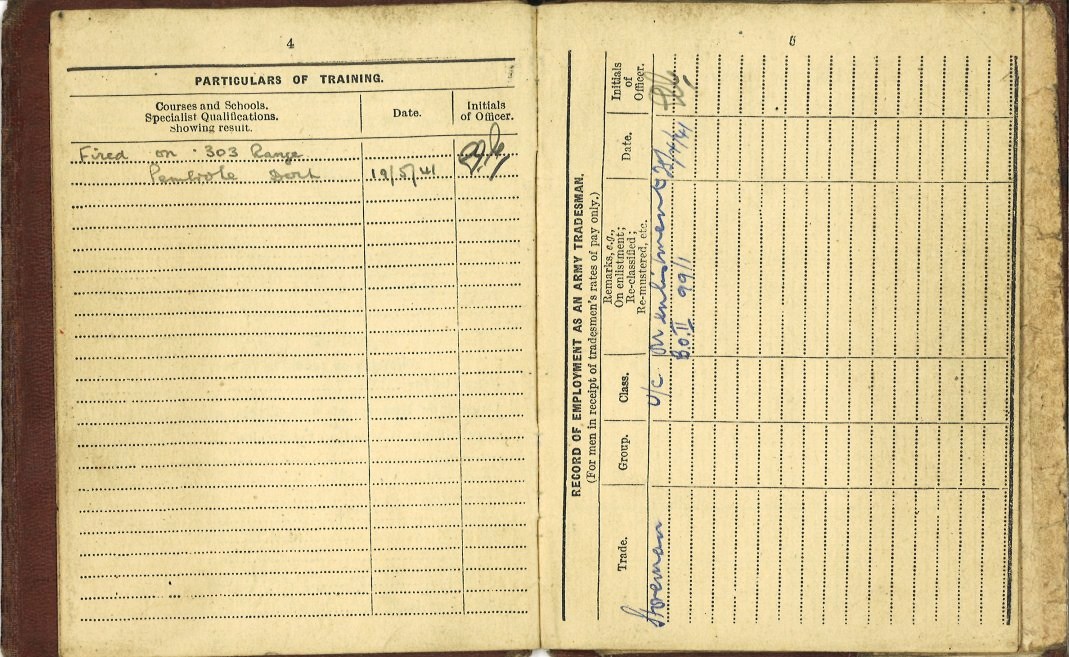 4
PARTICULARS OF TRAINING.
Courses and Schools.
Specialist Qualifications.
Showing result.
Date.
Initials
of Officer.
Fired on .303 Range
Pembroke Dock 19/5/41
5
RECORD OF EMPLOYMENT AS AN ARMY TRADESMAN.
(For men in receipt of tradesmen's rates of pay only.)
Trade.
Group.
Class.
Remarks, e.g.,
On enlistment;
Re-classified;
Re-mustered, etc.
Date.
Initials
of
Officer.
Storeman U/C On enlistment
B.O.II 99/1